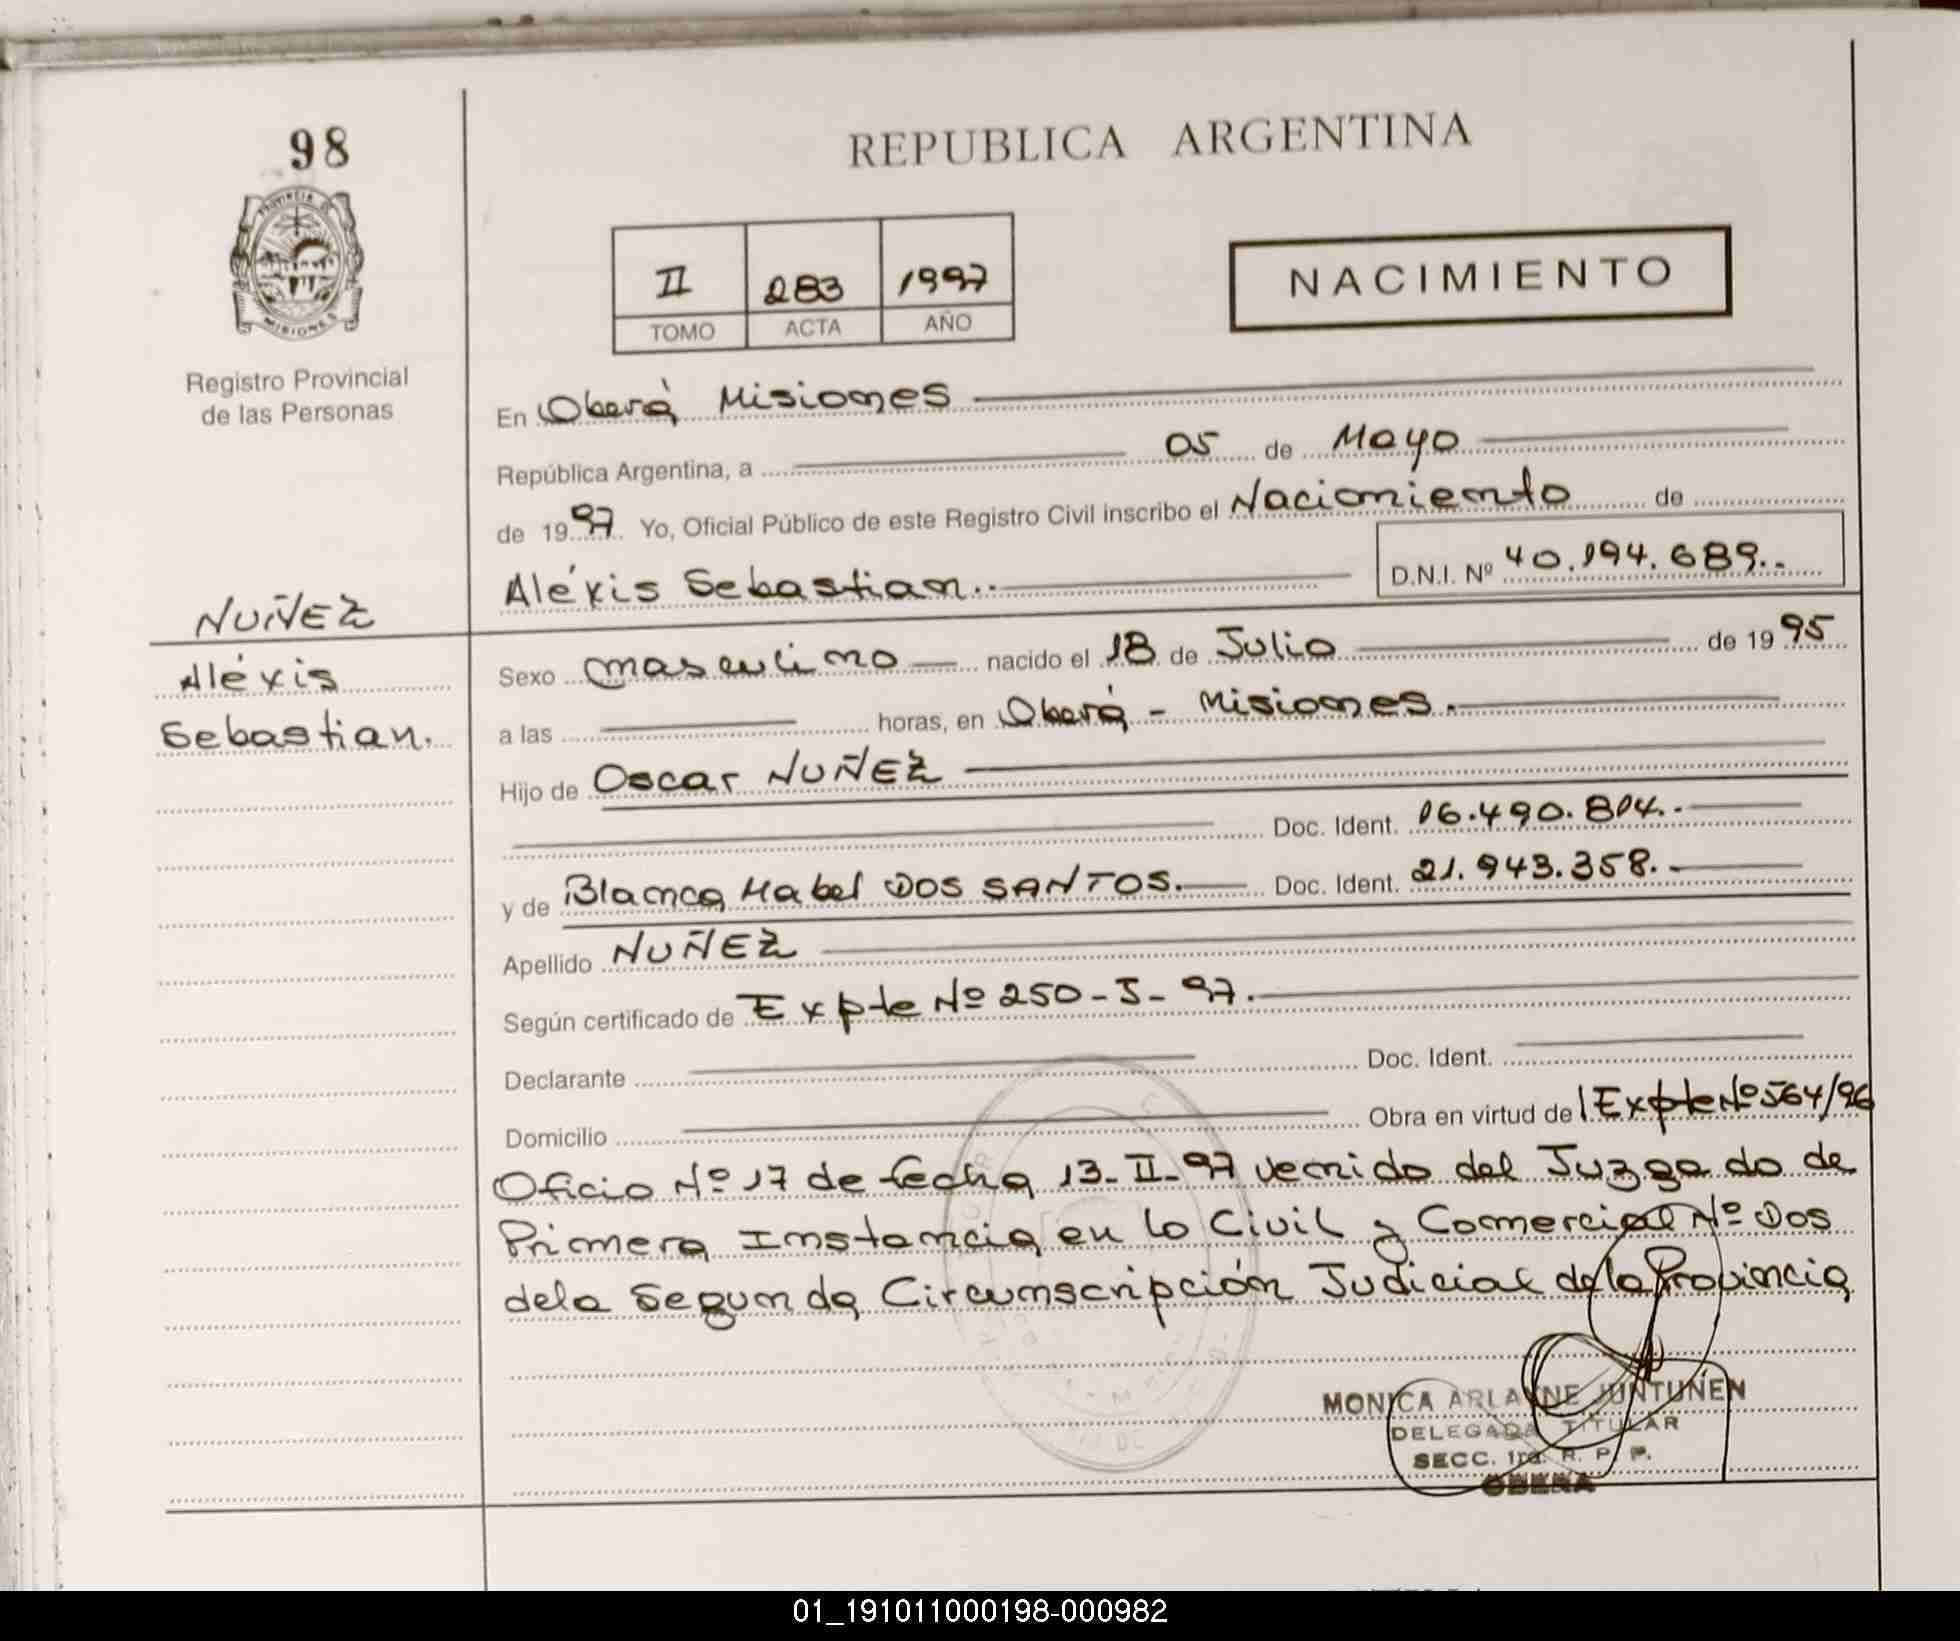 98
REPUBLICA ARGENTINA
PROVINCIA DE
MISIONES
II 283 1997
TOMO ACTA AÑO
NACIMIENTO
Registro Provincial
de las Personas
En Oberá Misiones
República Argentina, a 05 de Mayo
de 1997. Yo, Oficial Público de este Registro Civil inscribo el Nacimiento de
Aléxis Sebastian.. D.N.I. Nº 40.194.689..
NUÑEZ
Aléxis
Sebastian.
Sexo masculino nacido el 18 de Julio de 1995
a las horas, en Oberá - Misiones.
Hijo de Oscar NUÑEZ
Doc. Ident. 16.490.814.-
y de Blanca Mabel DOS SANTOS. Doc. Ident. 21.943.358.
Apellido NUÑEZ
Según certificado de Expte Nº 250-J-97.
Declarante Doc. Ident.
Domicilio Obra en virtud de Expte Nº 564/96
Oficio Nº 17 de fecha 13-II-97 venido del Juzgado de
Primera Instancia en lo Civil y Comercial Nº Dos
dela Segunda Circunscripción Judicial de la Provincia
MONICA ARLAYNE JUNTUNEN
DELEGADA TITULAR
SECC. 1ra. R. P. P.
OBERA
01_191011000198-000982